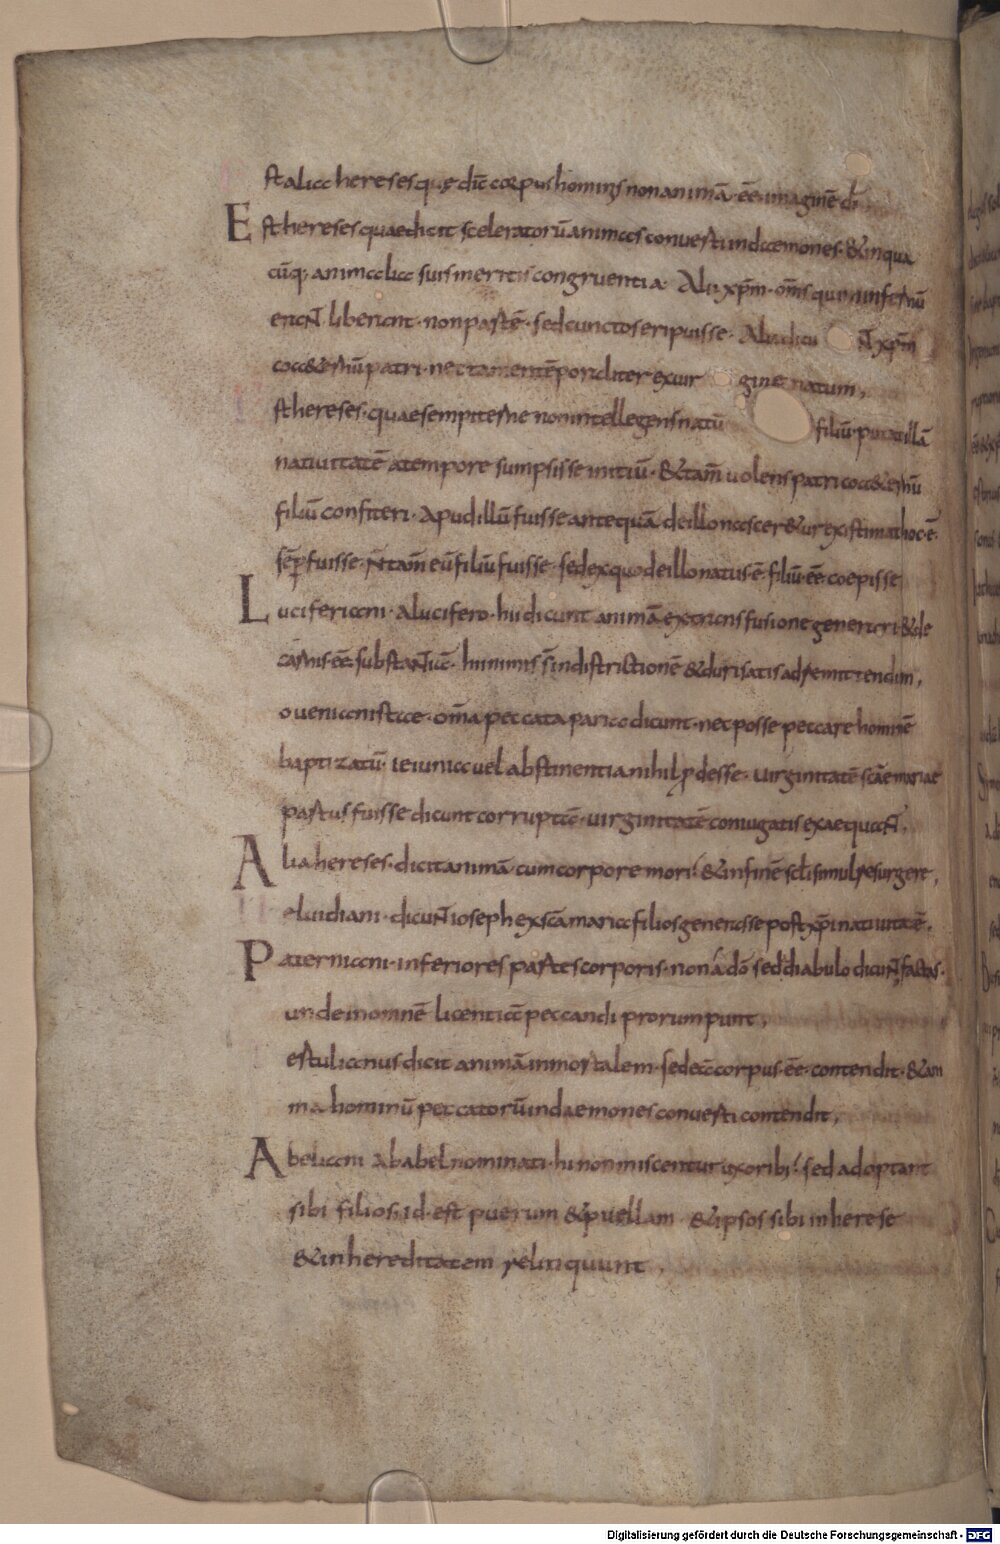 st alia hereses quę dic̄ corpus hominis non animā ēē imaginē dī
Est hereses quae dicit sceleratorū animas converti in daemones & in qua
cūq; animalia suis meritis congruentia. Alii xp̄m om̄s qui in infernū
erant liberant non partē sed cunctos eripuisse. Alii dicu nt xp̄m
coaet&ernū patri nec tamen tēporaliter ex vir gine natum,
st hereses quae sempiterne non intellegens natū filiū putat illā
nativitatē a tempore sumpsisse initiū &tam̄ volens patri coaet&ernū
filiū confiteri. Apud illū fuisse antequā de illo nascer&ur existimat hoc ē
sēp fuisse n̄ tam̄ eū filiū fuisse sed ex quo de illo natus ē filiū ēē coepisse
Luciferiani a lucifero hi dicunt animā ex transfusione generari & de
carnis ēē substantia. hi nimis s̄ in districtionē & duri satis ad remittendum,
ovenianistae om̄a peccata paria dicunt nec posse peccare hominē
baptizatū ieiunia vel abstinentia nihil ꝓdesse. virginitatē sc̄ae mariae
partus fuisse dicunt corruptā. virginitatē coniugatis exaequant,
Alia hereses dicit animā cum corpore mori & in finē scl̄i simul resurgere,
eluidiani dicunt ioseph ex sc̄a maria filios generasse post xp̄i nativitatē.
Paterniani inferiores partes corporis non a dō sed diabulo dicunt factas.
unde in omnē licentiā peccandi prorumpunt,
ertulianus dicit animā inmortalem sed eā corpus ēē contendit & ani
ma hominū peccatorū in daemones converti contendit,
Abeliani ab abel nominati hi non miscentur uxorib; sed adoptant
sibi filios id est puerum & puellam & ipsos sibi inherese
& in hereditatem relinquunt
Digitalisierung gefördert durch die Deutsche Forschungsgemeinschaft - DFG